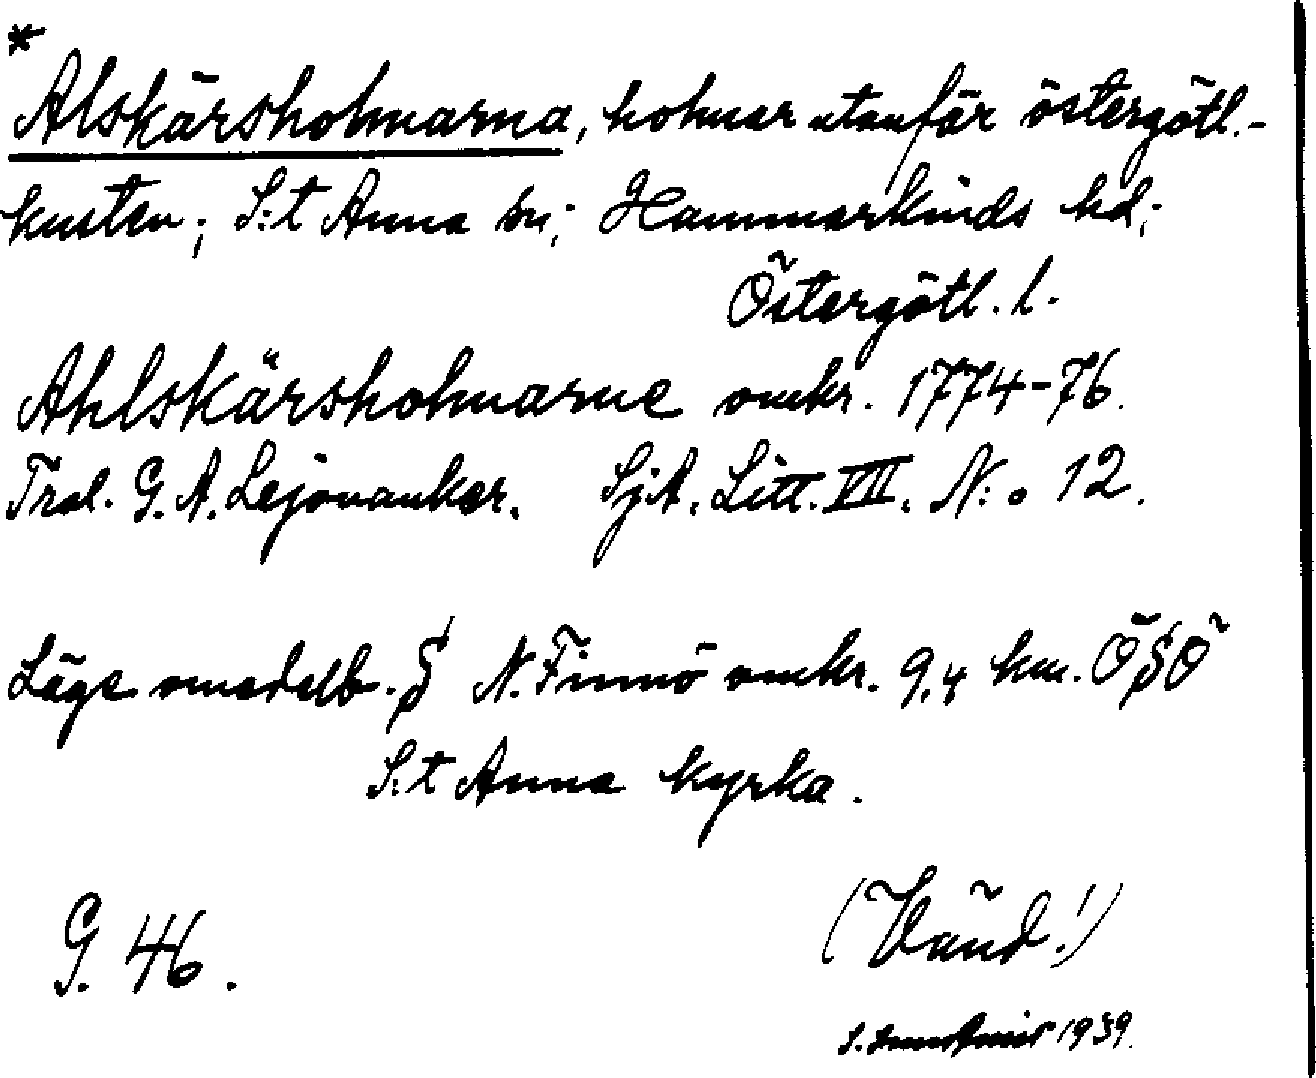 *
Alskärsholmarna, holmar utanför östergötl.-
kusten; S:t Anna sn; Hammarkinds hd;
Östergötl. l.
Ahlskärsholmarne omkr. 1774-76.
Tral. G. A. Lejonanker. SjA. Litt. VII. N:o 12.
Läge omedelb. S N. Finnö omkr. 9,4 km. ÖSÖ
S:t Anna kyrka.
G. 46.
(Vänd!)
1939.